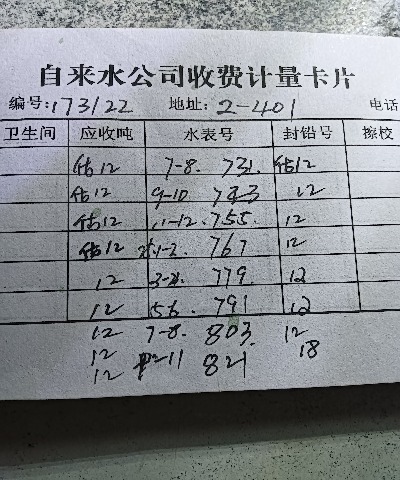 自来水公司收费计量卡片
编号: 173122 地址: 2-401 电话
卫生间 应收吨 水表号 封铅号 擦校
估12 7-8. 731. 估12
估12 9-10 743 12
估12 11-12. 755. 12
估12 1-2. 767 12
12 779. 12
12 5 6. 791 12
12 7-8. 803. 12
12 18
12 821